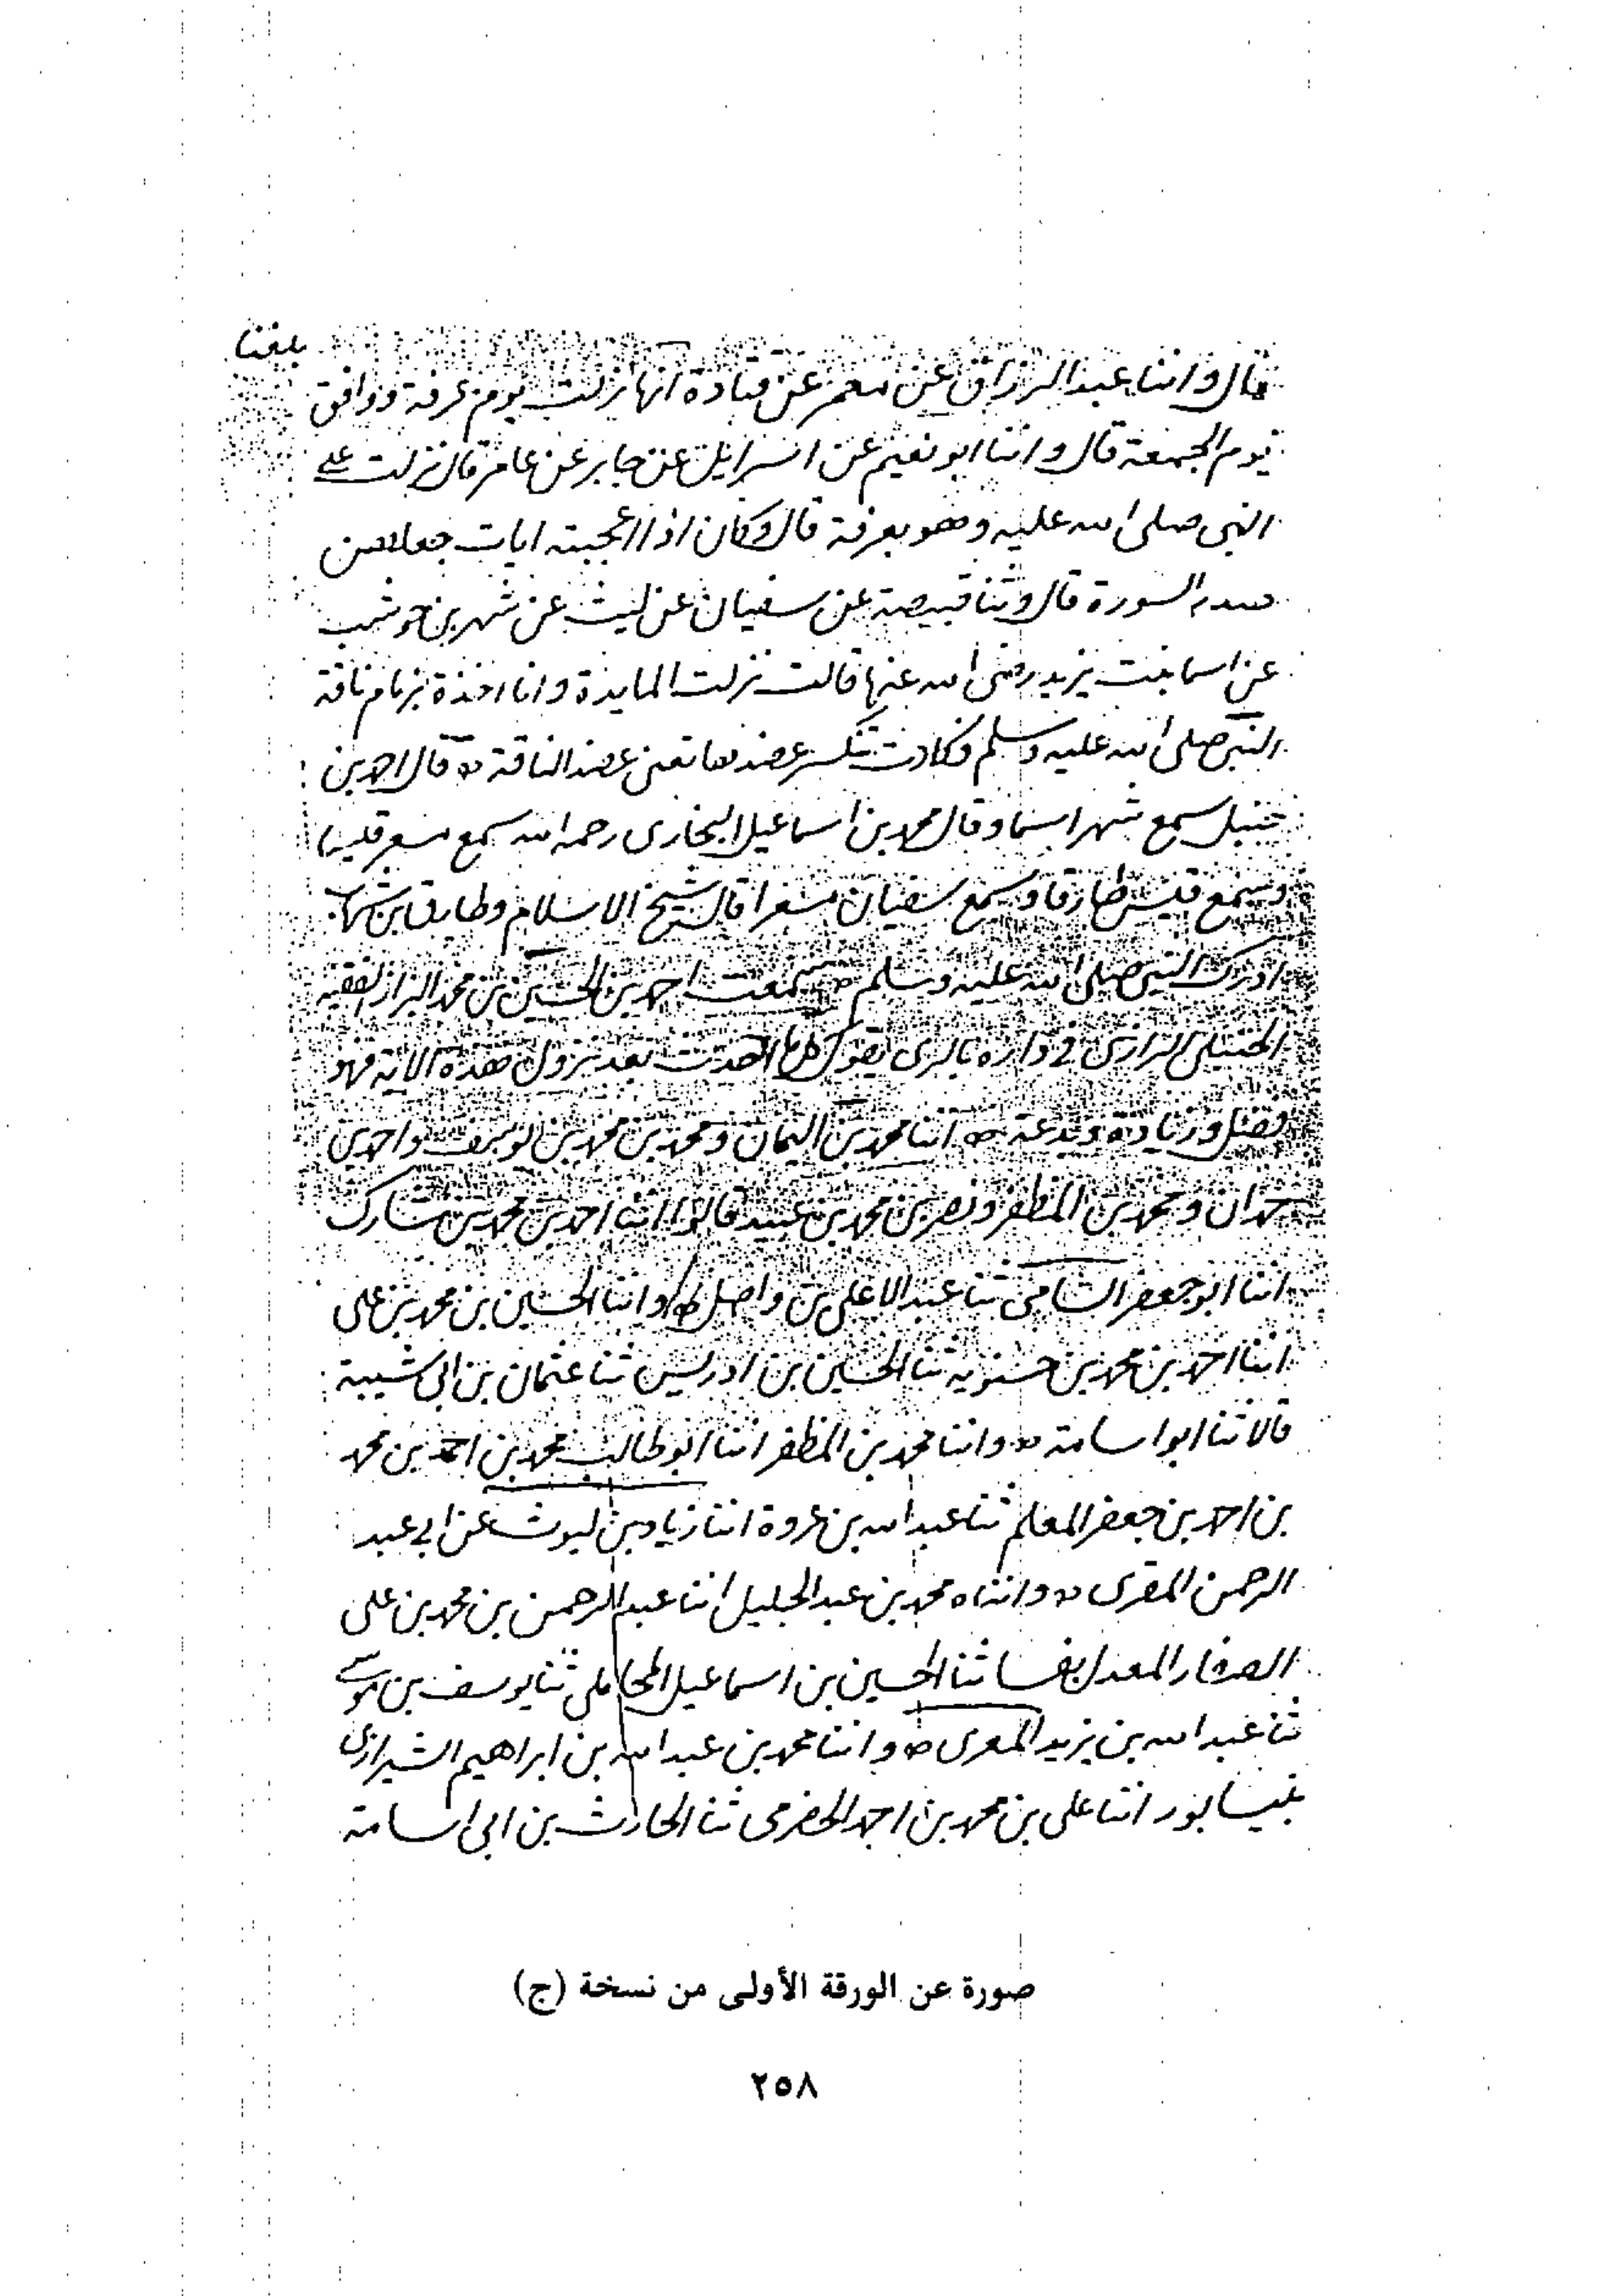 بلغنا
قال وانبا عبد الرزاق عن معمر عن قتادة انها نزلت يوم عرفة ووافق
يوم الجمعة قال وانبا ابو نعيم عن اسرايل عن جابر عن عامر قال نزلت على
النبي صلى الله عليه وهو بعرفة قال وكان اذا اعجبته ايات جعلهن
صدر السورة قال وثنا قبيصة عن سفيان عن ليث عن شهر بن حوشب
عن اسما بنت يزيد رضى الله عنها قالت نزلت المايدة وانا اخذة بزمام ناقة
النبي صلى الله عليه وسلم فكادت تنكسر عضدها تعنى عضد الناقة ه قال احمد بن
حنبل سمع شهر اسما وقال محمد بن اسماعيل البخارى رحمه الله سمع مسعر قيسا
وسمع قيس طارقا وسمع سفيان مسعرا قال شيخ الاسلام وطارق بن شهاب
ادرك النبي صلى الله عليه وسلم ه سمعت احمد بن الحسين بن محمد البزاز الفقيه
الحنبلي الرازى في داره بالرى يقول كل ما احدث بعد نزول هذه الاية فهو
فضل وزيادة وبدعة ه انبا محمد بن اليمان ومحمد بن محمد بن يوسف واحمد بن
حمدان ومحمد بن المظفر ونصر بن محمد بن عبيد قالوا انبا احمد بن محمد بن شارك
انبا ابو جعفر السامى ثنا عبد الاعلى بن واصل ه وانبا الحسين بن محمد بن على
انبا احمد بن محمد بن حسنويه ثنا الحسين بن ادريس ثنا عثمان بن ابى شيبة
قالا ثنا ابو اسامة ه وانبا محمد بن المظفر انبا ابو طالب محمد بن احمد بن محمد
بن احمد بن جعفر المعلم ثنا عبد الله بن عروة انبا زياد بن ايوب عن ابي عبد
الرحمن المقرى ه وانباه محمد بن عبد الجليل انبا عبد الرحمن بن محمد بن على
الصفار المعدل بفسا ثنا الحسين بن اسماعيل المحاملي ثنا يوسف بن موسى
ثنا عبد الله بن يزيد المقرى ه وانبا محمد بن عبد الله بن ابراهيم الشيرازى
بنيسابور انبا على بن محمد بن احمد الحضرمى ثنا الحارث بن ابى اسامة
صورة عن الورقة الأولى من نسخة (ج)
٢٥٨